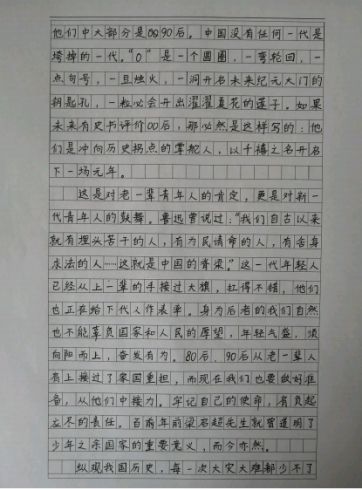 他们中大部分是80，90后。中国没有任何一代是
垮掉的一代。“0”是一个圆圈，一弯轮回，一
点句号，一豆烛火，一洞开启未来纪元大门的
钥匙孔，一粒必会开出濯濯夏花的莲子。如果
未来有史书评价00后，那必然是这样写的：他
们是冲向历史拐点的掌舵人，以千禧之名开启
下一场元年。
这是对老一辈青年人的肯定，更是对新一
代青年人的鼓舞。鲁迅曾说过：“我们自古以来
就有埋头苦干的人，有为民请命的人，有舍身
求法的人……这就是中国的脊梁。”这一代年轻人
已经从上一辈的手接过大旗，扛得不错，他们
也正在给下代人作表率。身为后者的我们自然
也不能辜负国家和人民的厚望，年轻气盛，须
向阳而上，奋发有为。80后、90后从老一辈人
肩上接过了家国重担，而现在我们也要做好准
备，从他们中接力。牢记自己的使命，肩负起
应尽的责任。百商年前梁启超先生就曾道明了
少年之于国家的重要意义，而今亦然。
纵观我国历史，每一次大灾大难都少不了